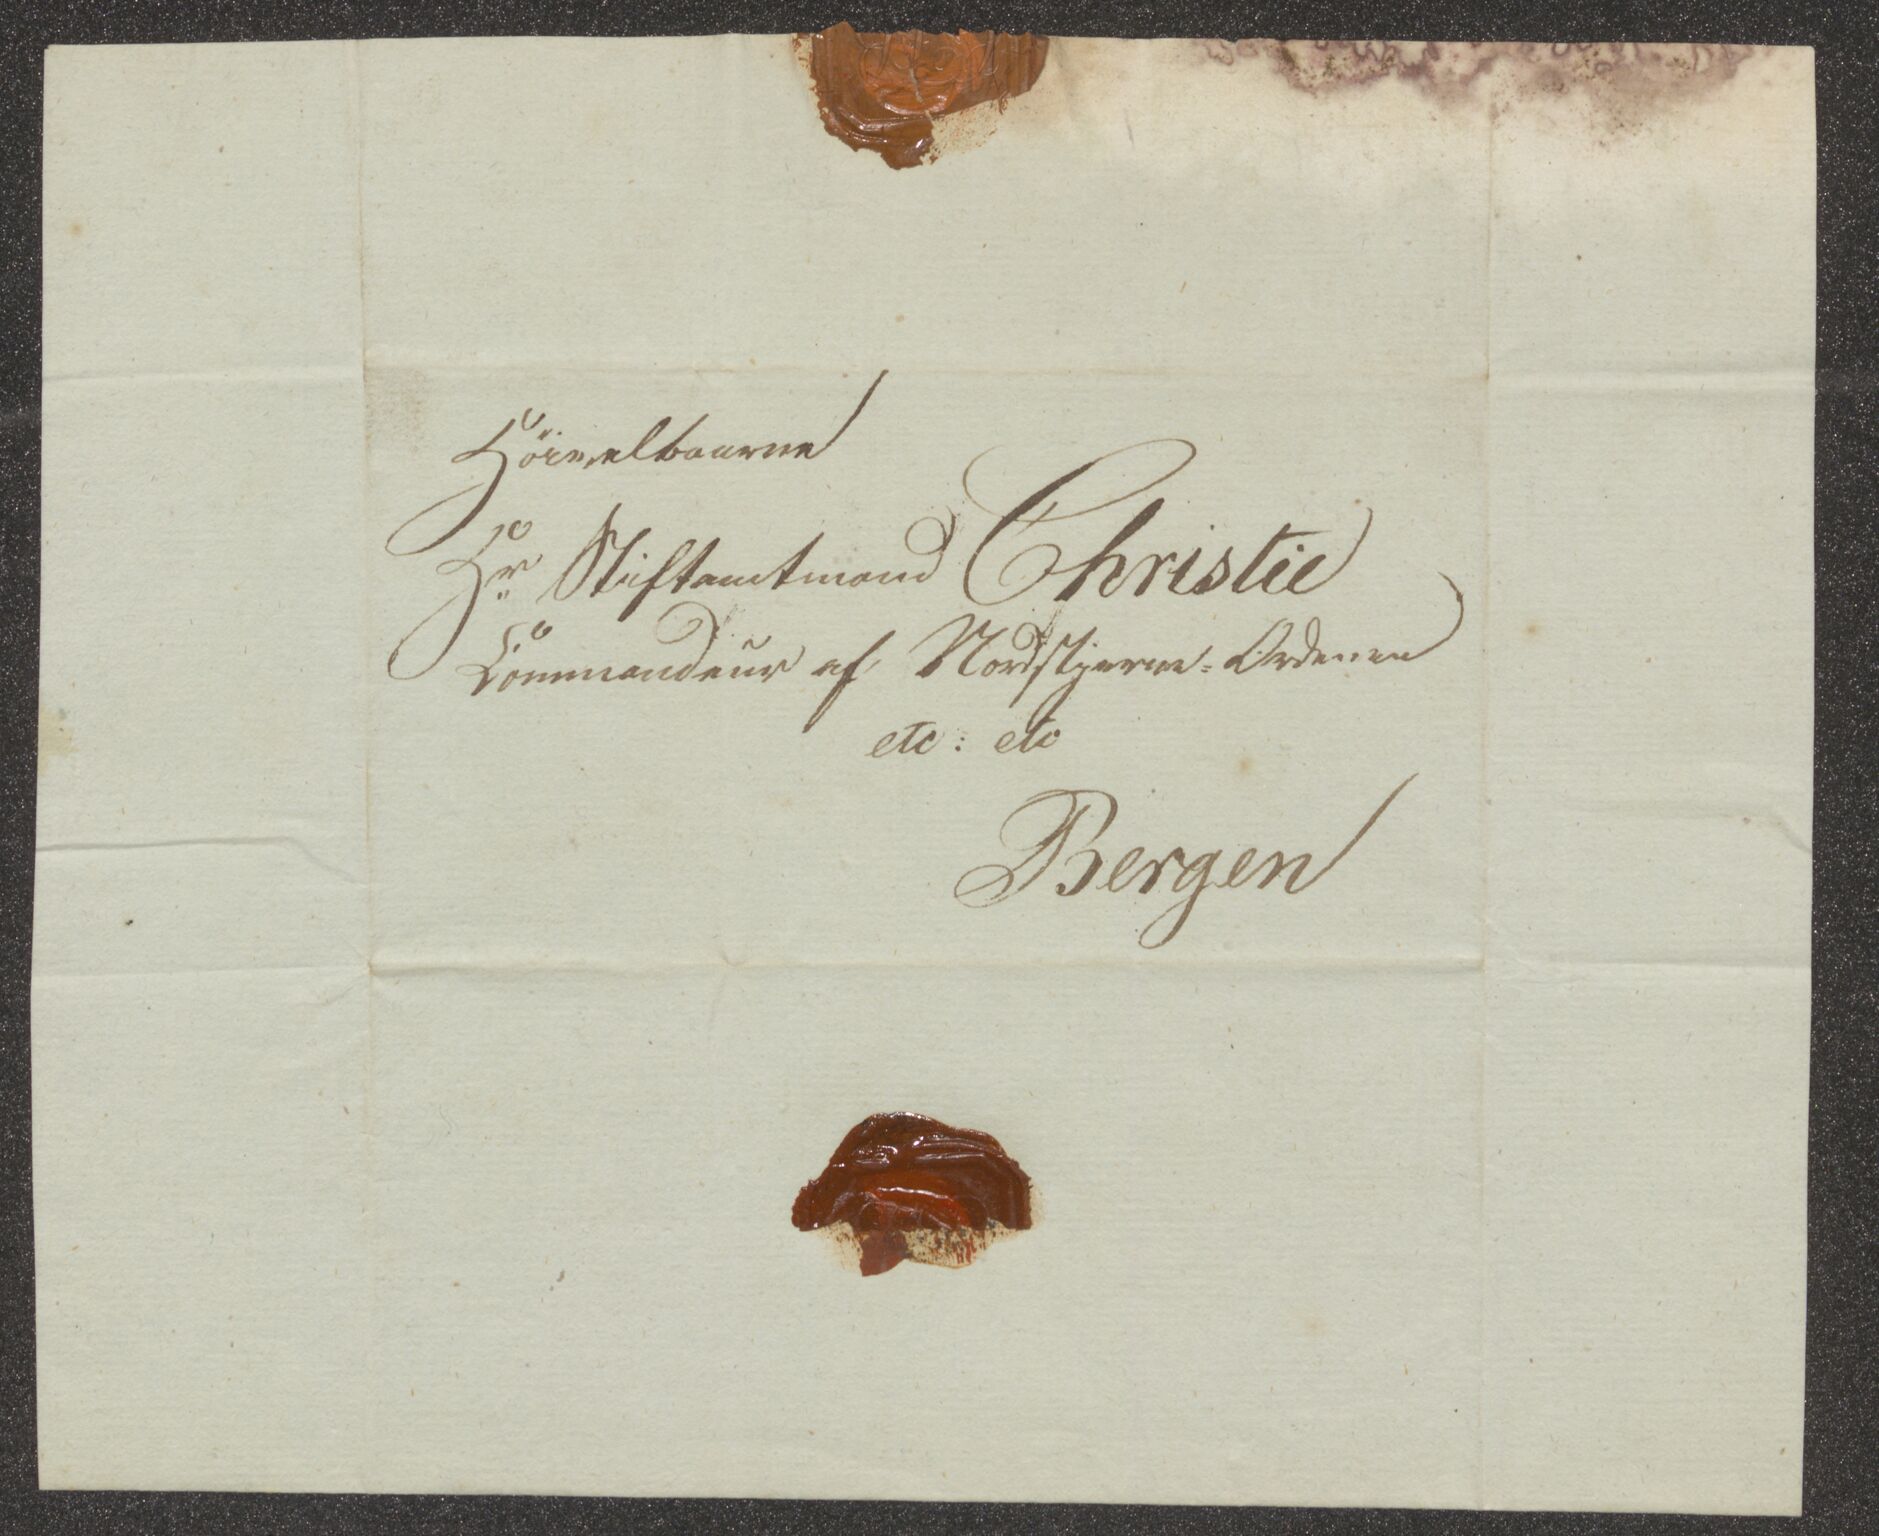 Höivelbaarne
Hr Stiftamtmand Christie
Commandeur af Nordstjerne-Ordenen
etc: etc
Bergen